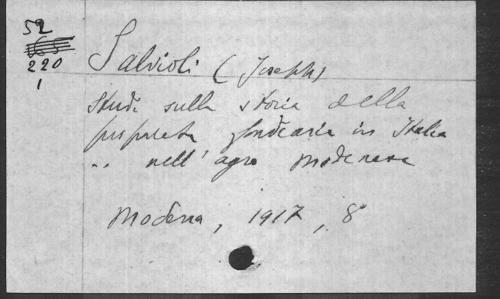 52
220
1
Salvioli (Joseph)
Studi sulla storia della
proprieta fondiaria in Italia
.. nell' agro Modenese
Modena, 1917, 8°